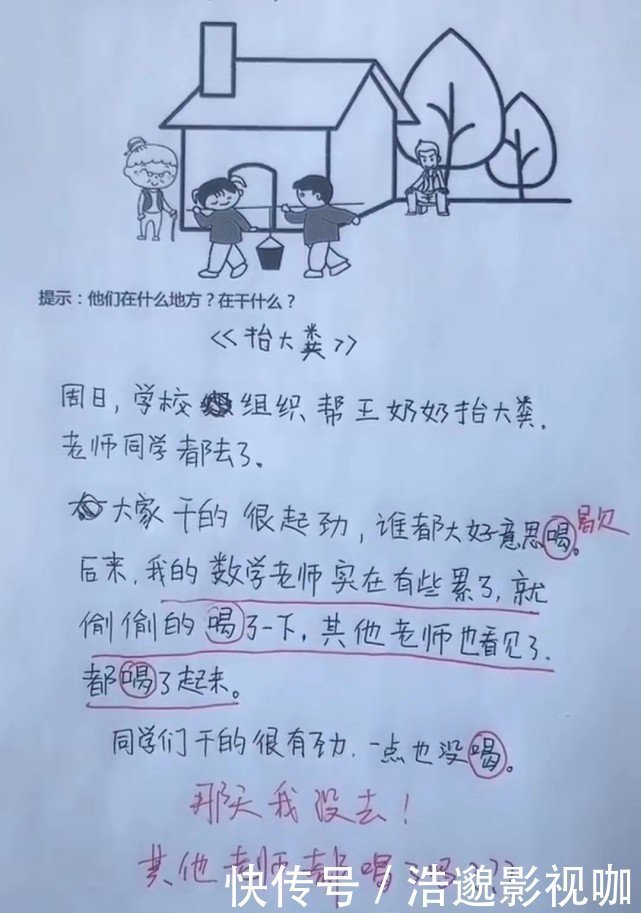 提示：他们在什么地方？在干什么？
<<抬大粪>>
周日，学校组织帮王奶奶抬大粪.
老师同学都去了。
大家干的很起劲，谁都大好意思喝。歇
后来，我的数学老师实在有些累了，就
偷偷的喝了一下，其他老师也看见了.
都喝了起来。
同学们干的很有劲.一点也没喝。
那天我没去！
其他老师都喝了吗???
快传号/浩邈影视咖